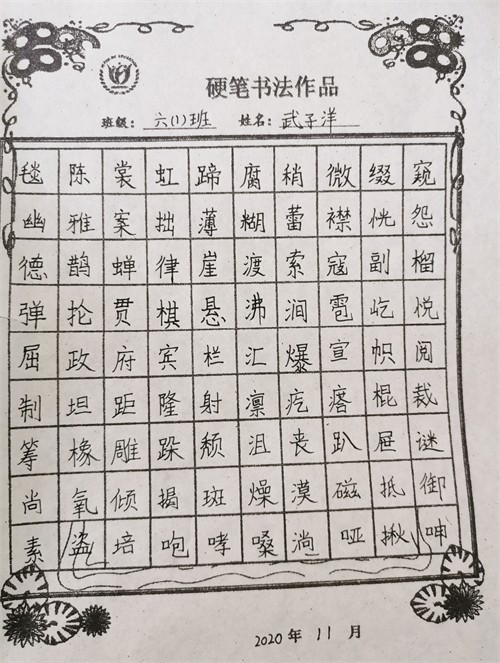 硬笔书法作品
班级：六(1)班 姓名：武子洋
毯陈裳虹蹄腐稍微缀窥
幽雅案拙薄糊蕾襟恍怨
德鹊蝉律崖渡索寇副榴
弹抡贯棋悬沸涧雹屹悦
屈政府宾栏汇爆宣帜阅
制坦距隆射凛疙瘩棍裁
筹橡雕跺颓沮丧趴屉谜
尚氧倾揭斑燥漠磁抵御
素盗培咆哮嗓淌哑揪呻
2020年11月